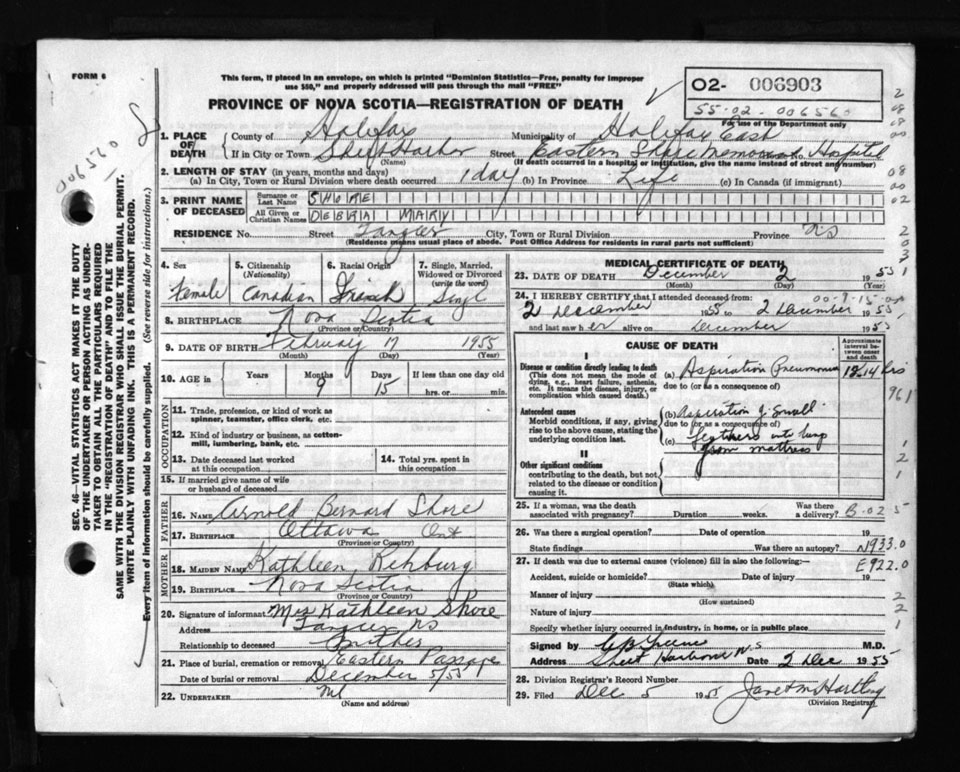 FORM 6
This form, if placed in an envelope, on which is printed "Dominion Statistics—Free, penalty for improper
use $50," and properly addressed will pass through the mail "FREE"
PROVINCE OF NOVA SCOTIA—REGISTRATION OF DEATH
O2- 006903
55-02-006560
For use of the Department only
006560
SEC. 46—VITAL STATISTICS ACT MAKES IT THE DUTY
OF THE UNDERTAKER OR PERSON ACTING AS UNDER-
TAKER TO OBTAIN ALL THE PARTICULARS REQUIRED
IN THE "REGISTRATION OF DEATH" AND TO FILE THE
SAME WITH THE DIVISION REGISTRAR WHO SHALL ISSUE THE BURIAL PERMIT.
WRITE PLAINLY WITH UNFADING INK. THIS IS A PERMANENT RECORD.
Every item of information should be carefully supplied. (See reverse side for instructions.)
1. PLACE OF DEATH County of Halifax Municipality of Halifax East
If in City or Town Sheet Harbor Street Eastern Shore Memorial No. Hospital
(Name) (If death occurred in a hospital or institution, give the name instead of street and number)
2. LENGTH OF STAY (in years, months and days)
(a) In City, Town or Rural Division where death occurred 1 day (b) In Province Life (c) In Canada (if immigrant)
3. PRINT NAME OF DECEASED Surname or Last Name SHORE
All Given or Christian Names DEBRA MARY
RESIDENCE No. Street Tangier City, Town or Rural Division Province NS
(Residence means usual place of abode. Post Office Address for residents in rural parts not sufficient)
4. Sex Female
5. Citizenship (Nationality) Canadian
6. Racial Origin
7. Single, Married, Widowed or Divorced (write the word) Singl
8. BIRTHPLACE Nova Scotia
(Province or Country)
9. DATE OF BIRTH February 17 1955
(Month) (Day) (Year)
10. AGE in Years Months 9 Days 15 If less than one day old hrs. or min.
OCCUPATION
11. Trade, profession, or kind of work as spinner, teamster, office clerk, etc.
12. Kind of industry or business, as cotton-mill, lumbering, bank, etc.
13. Date deceased last worked at this occupation
14. Total yrs. spent in this occupation
15. If married give name of wife or husband of deceased
FATHER
16. NAME Arnold Bernard Shore
17. BIRTHPLACE Ottawa Ont
(Province or Country)
MOTHER
18. MAIDEN NAME Kathleen Rehburg
19. BIRTHPLACE Nova Scotia
(Province or Country)
20. Signature of informant Mrs Kathleen Shore
Address Tangier NS
Relationship to deceased Mother
21. Place of burial, cremation or removal Eastern Passage
Date of burial or removal December 5/55
22. UNDERTAKER
(Name and address)
MEDICAL CERTIFICATE OF DEATH
23. DATE OF DEATH December 2 1955
(Month) (Day)
24. I HEREBY CERTIFY that I attended deceased from:
2 December 1955 to 2 December 1955
and last saw her alive on December 1955
CAUSE OF DEATH
Approximate interval between onset and death
I
Disease or condition directly leading to death
(This does not mean the mode of dying, e.g., heart failure, asthenia, etc. It means the disease, injury, or complication which caused death.)
(a) Aspiration Pneumonia
due to (or as a consequence of)
Antecedent causes
Morbid conditions, if any, giving rise to the above cause, stating the underlying condition last.
(b) Aspiration of small
due to (or as a consequence of)
(c) feathers into lung
from mattress
II
Other significant conditions
contributing to the death, but not related to the disease or condition causing it.
25. If a woman, was the death associated with pregnancy? Duration weeks. Was there a delivery?
26. Was there a surgical operation? Date of operation 19
State findings Was there an autopsy? N933.0
27. If death was due to external causes (violence) fill in also the following:— E922.0
Accident, suicide or homicide? Date of injury 19
(State which)
Manner of injury
(How sustained)
Nature of injury
Specify whether injury occurred in industry, in home, or in public place
Signed by M.D.
Address Sheet Harbour N.S. Date 2 Dec 1955
28. Division Registrar's Record Number
29. Filed Dec 5 1955 Janet M. Hartling
(Division Registrar)